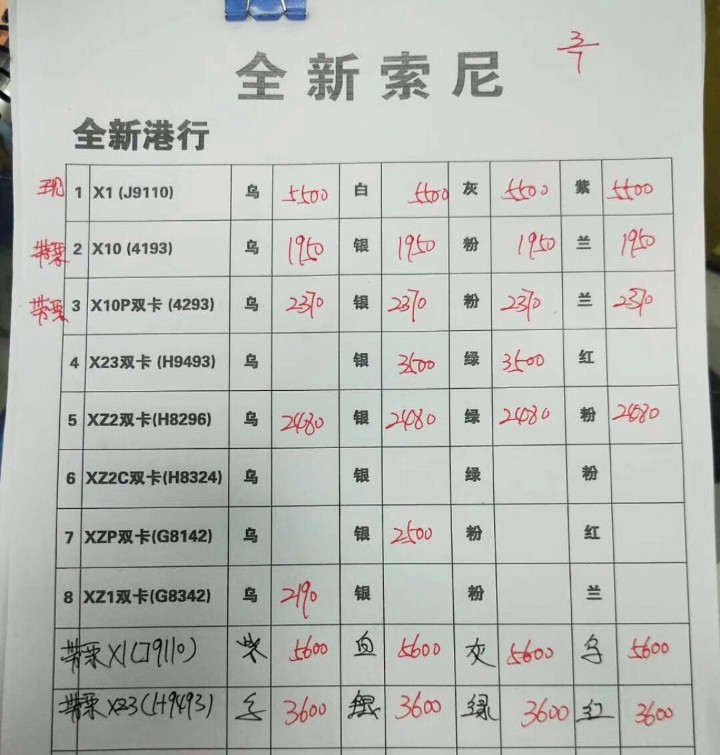 3/7
全新索尼
全新港行
现 1 X1 (J9110) 乌 5500 白 5500 灰 5500 紫 5500
带票 2 X10 (4193) 乌 1950 银 1950 粉 1950 兰 1950
带票 3 X10P双卡 (4293) 乌 2370 银 2370 粉 2370 兰 2370
4 X23双卡 (H9493) 乌 银 3500 绿 3500 红
5 XZ2双卡(H8296) 乌 2480 银 2480 绿 2480 粉 2480
6 XZ2C双卡(H8324) 乌 银 绿 粉
7 XZP双卡(G8142) 乌 银 2500 粉 红
8 XZ1双卡(G8342) 乌 2190 银 粉 兰
带票 X1(J9110) 紫 5600 白 5600 灰 5600 乌 5600
带票 XZ3(H9493) 乌 3600 银 3600 绿 3600 红 3600